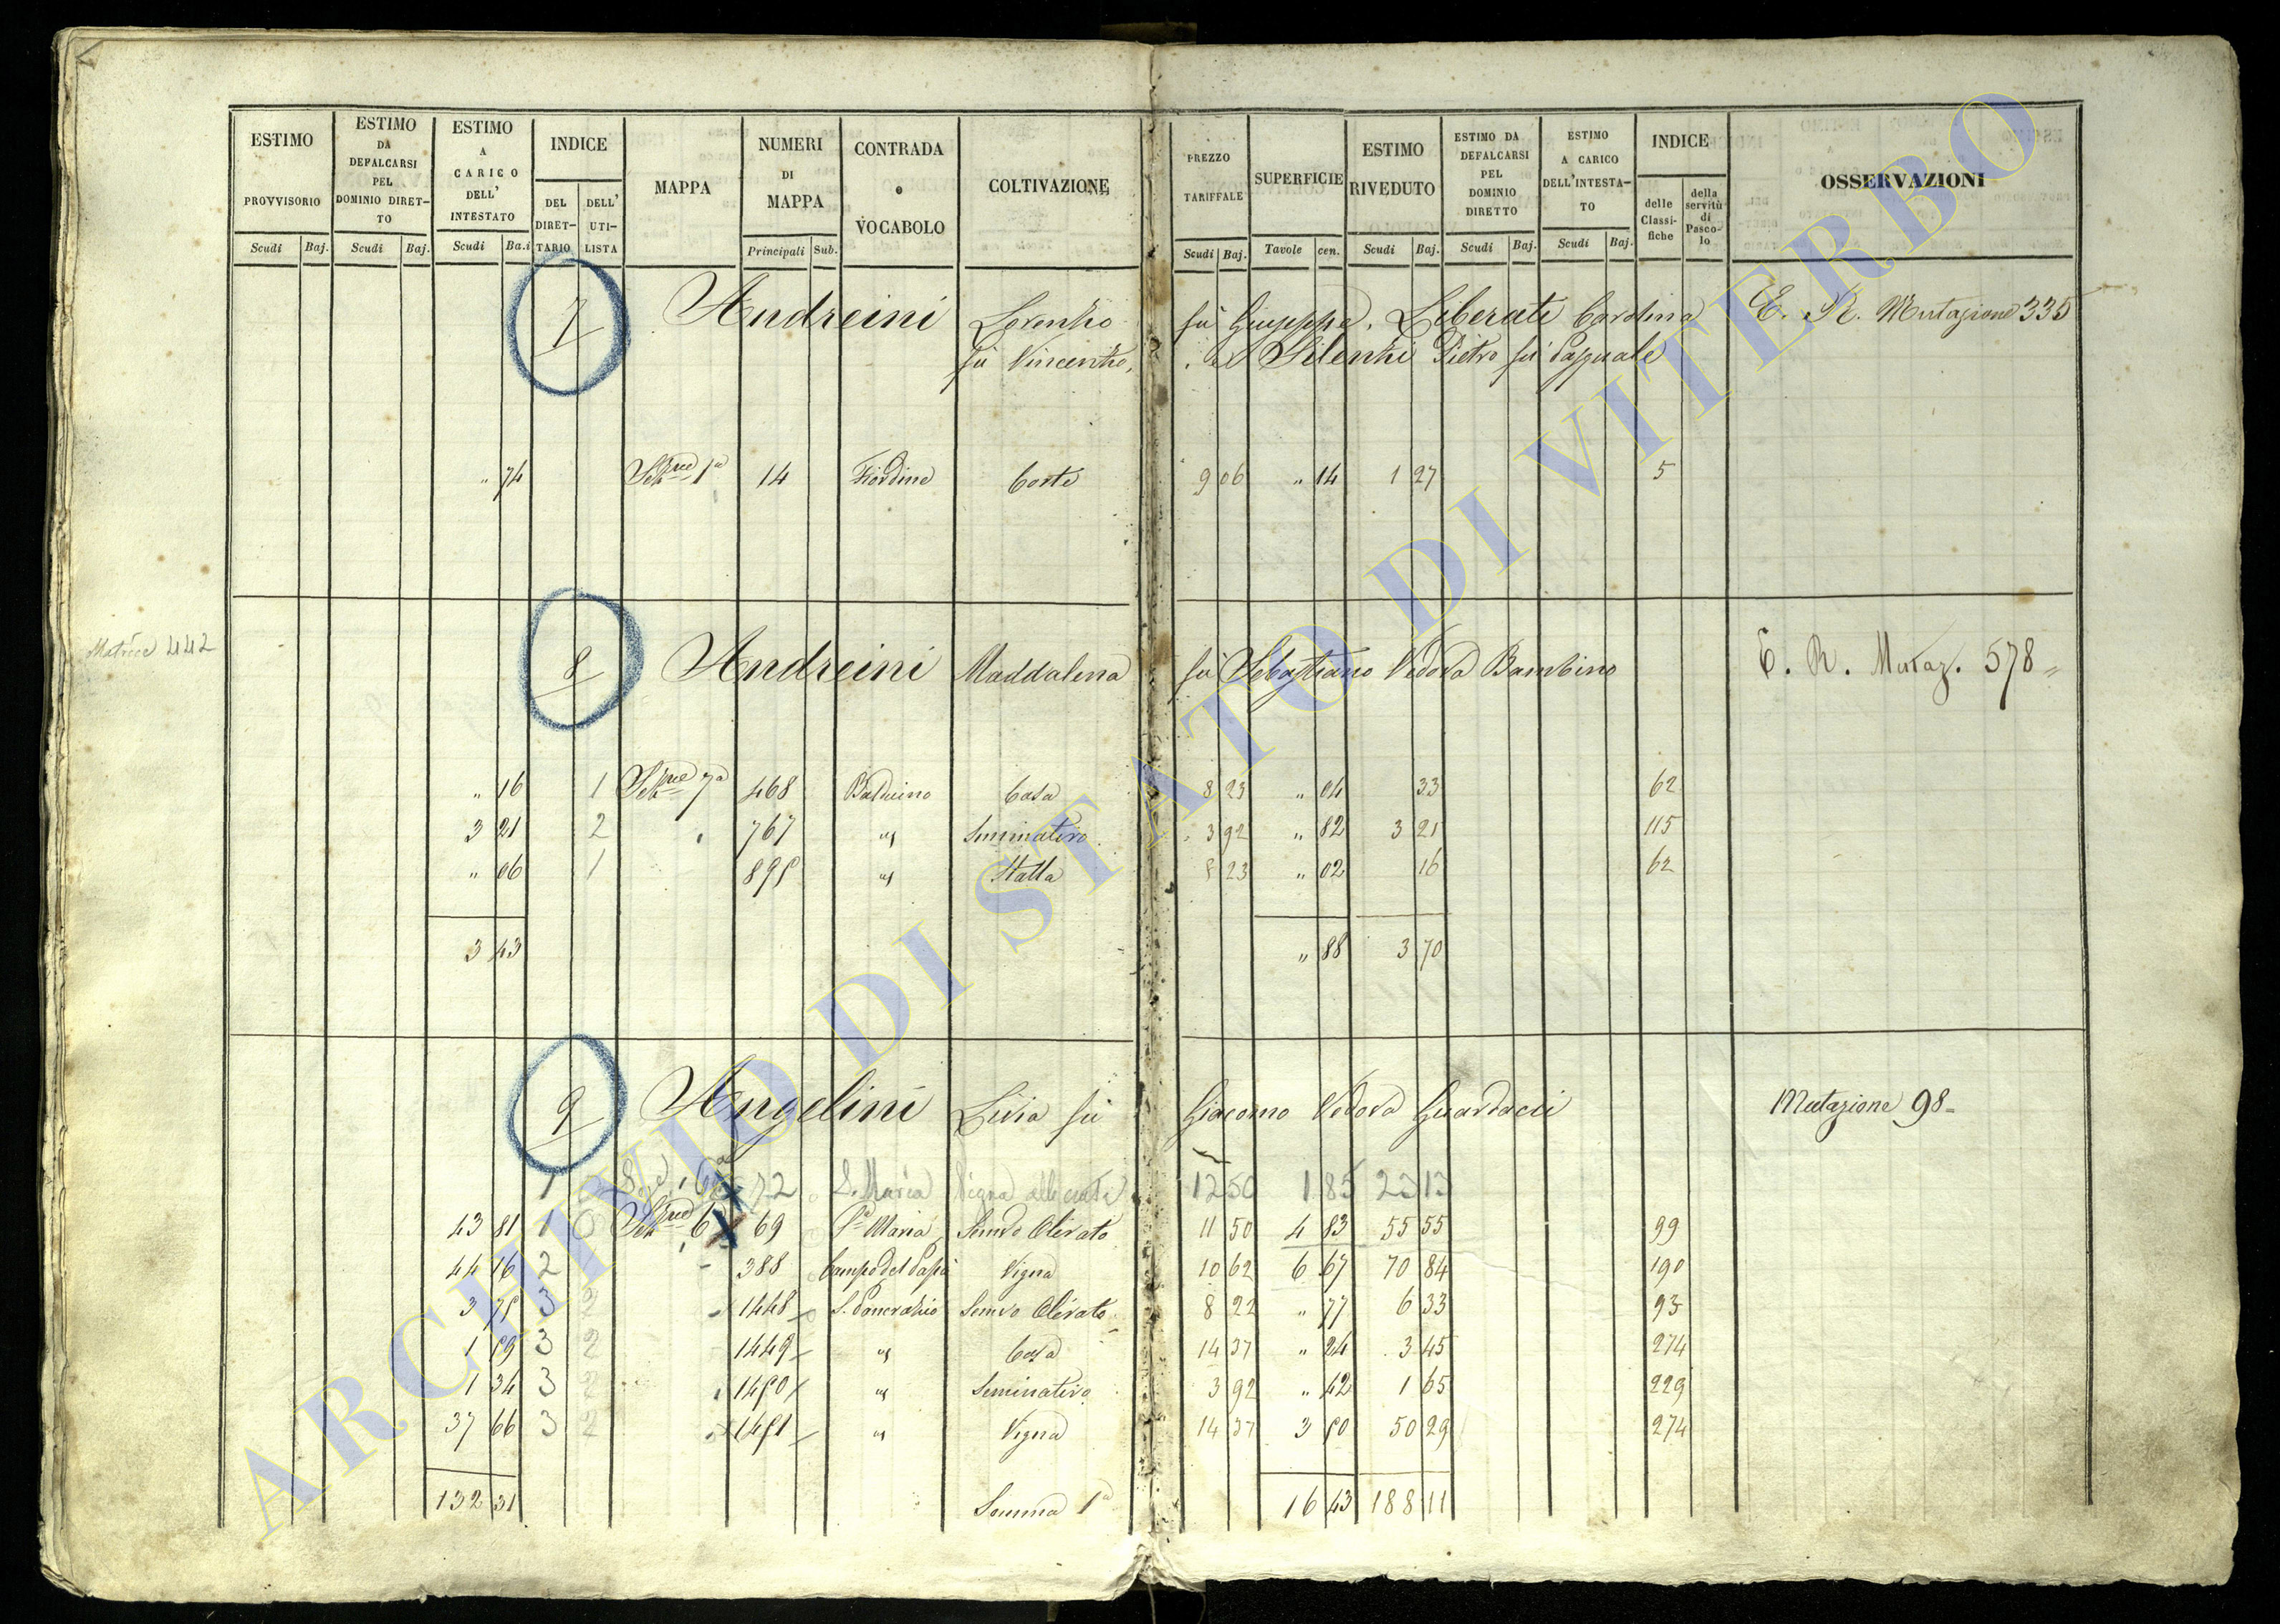 ESTIMO PROVVISORIO Scudi Baj.
ESTIMO DA DEFALCARSI PEL DOMINIO DIRETTO Scudi Baj.
ESTIMO A CARICO DELL' INTESTATO Scudi Ba.i
INDICE DEL DIRETTARIO DELL' UTILISTA
MAPPA
NUMERI DI MAPPA Principali Sub.
CONTRADA o VOCABOLO
COLTIVAZIONE
PREZZO TARIFFALE Scudi Baj.
SUPERFICIE Tavole cen.
ESTIMO RIVEDUTO Scudi Baj.
ESTIMO DA DEFALCARSI PEL DOMINIO DIRETTO Scudi Baj.
ESTIMO A CARICO DELL'INTESTATO Scudi Baj.
INDICE delle Classifiche della servitù di Pascolo
OSSERVAZIONI
7 Andreini Lorenzo fù Giuseppe, Liberati E. R. Mutazione 335
fù Vincenzo, ed Silenzi Pietro fù Pasquale
" 74 Sez.ne 1a 14 Corte 9 06 " 14 1 27 5
Matrice 442
8 Andreini Maddalena fù Sebastiano Vedova Bambino E. R. Mutaz. 578
" 16 1 Sez.ne 7a 468 Balduino Casa 8 23 " 04 33 62
3 21 2 767 " Seminativo 3 92 " 82 3 21 115
" 06 1 895 " Stalla 8 23 " 02 16 62
3 43 " 88 3 70
9 Angelini Livia fù Giacomo Vedova Guarducci Mutazione 98
1 6a 72 S. Maria Vigna 12 50 1 85 23 13
43 81 1 Sez.ne 6 69 S. Maria Semvo Olivato 11 50 4 83 55 55 99
44 16 2 388 Campo del Papa Vigna 10 62 6 67 70 84 190
3 75 3 2 1448 S. Pancrazio Semvo Olivato 8 22 " 77 6 33 93
1 59 3 2 1449 " Casa 14 37 " 24 3 45 274
1 34 3 2 1450 " Seminativo 3 92 " 42 1 65 229
37 66 3 2 1451 " Vigna 14 37 3 50 50 29 274
132 31 Somma 1a 16 43 188 11
ARCHIVIO DI STATO DI VITERBO